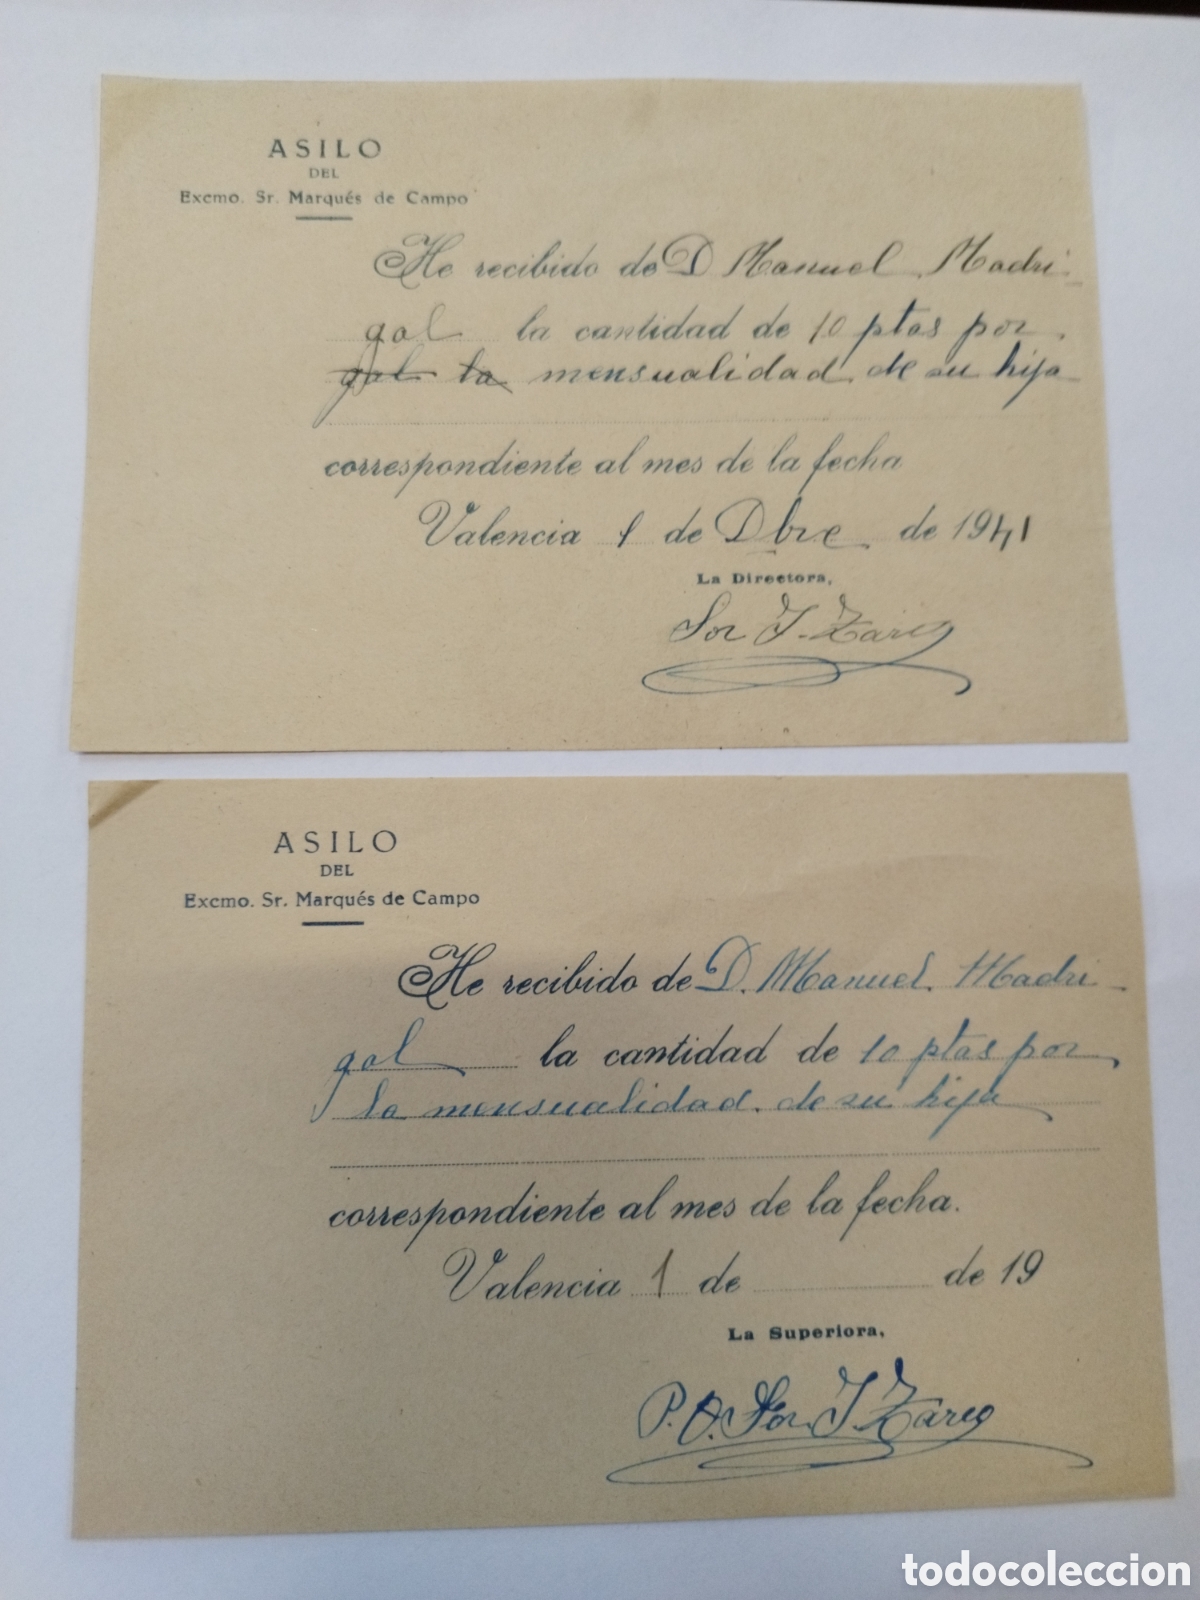 ASILO
DEL
Excmo. Sr. Marqués de Campo
He recibido de D Manuel Madri-
gal la cantidad de 10 ptas por
gal la mensualidad de su hija
correspondiente al mes de la fecha
Valencia 1 de Dbre de 1941
La Directora,
Sor J.
ASILO
DEL
Excmo. Sr. Marqués de Campo
He recibido de D. Manuel Madri-
gal la cantidad de 10 ptas por
la mensualidad de su hija
correspondiente al mes de la fecha.
Valencia 1 de de 19
La Superiora,
P.O. Sor J.
todocoleccion